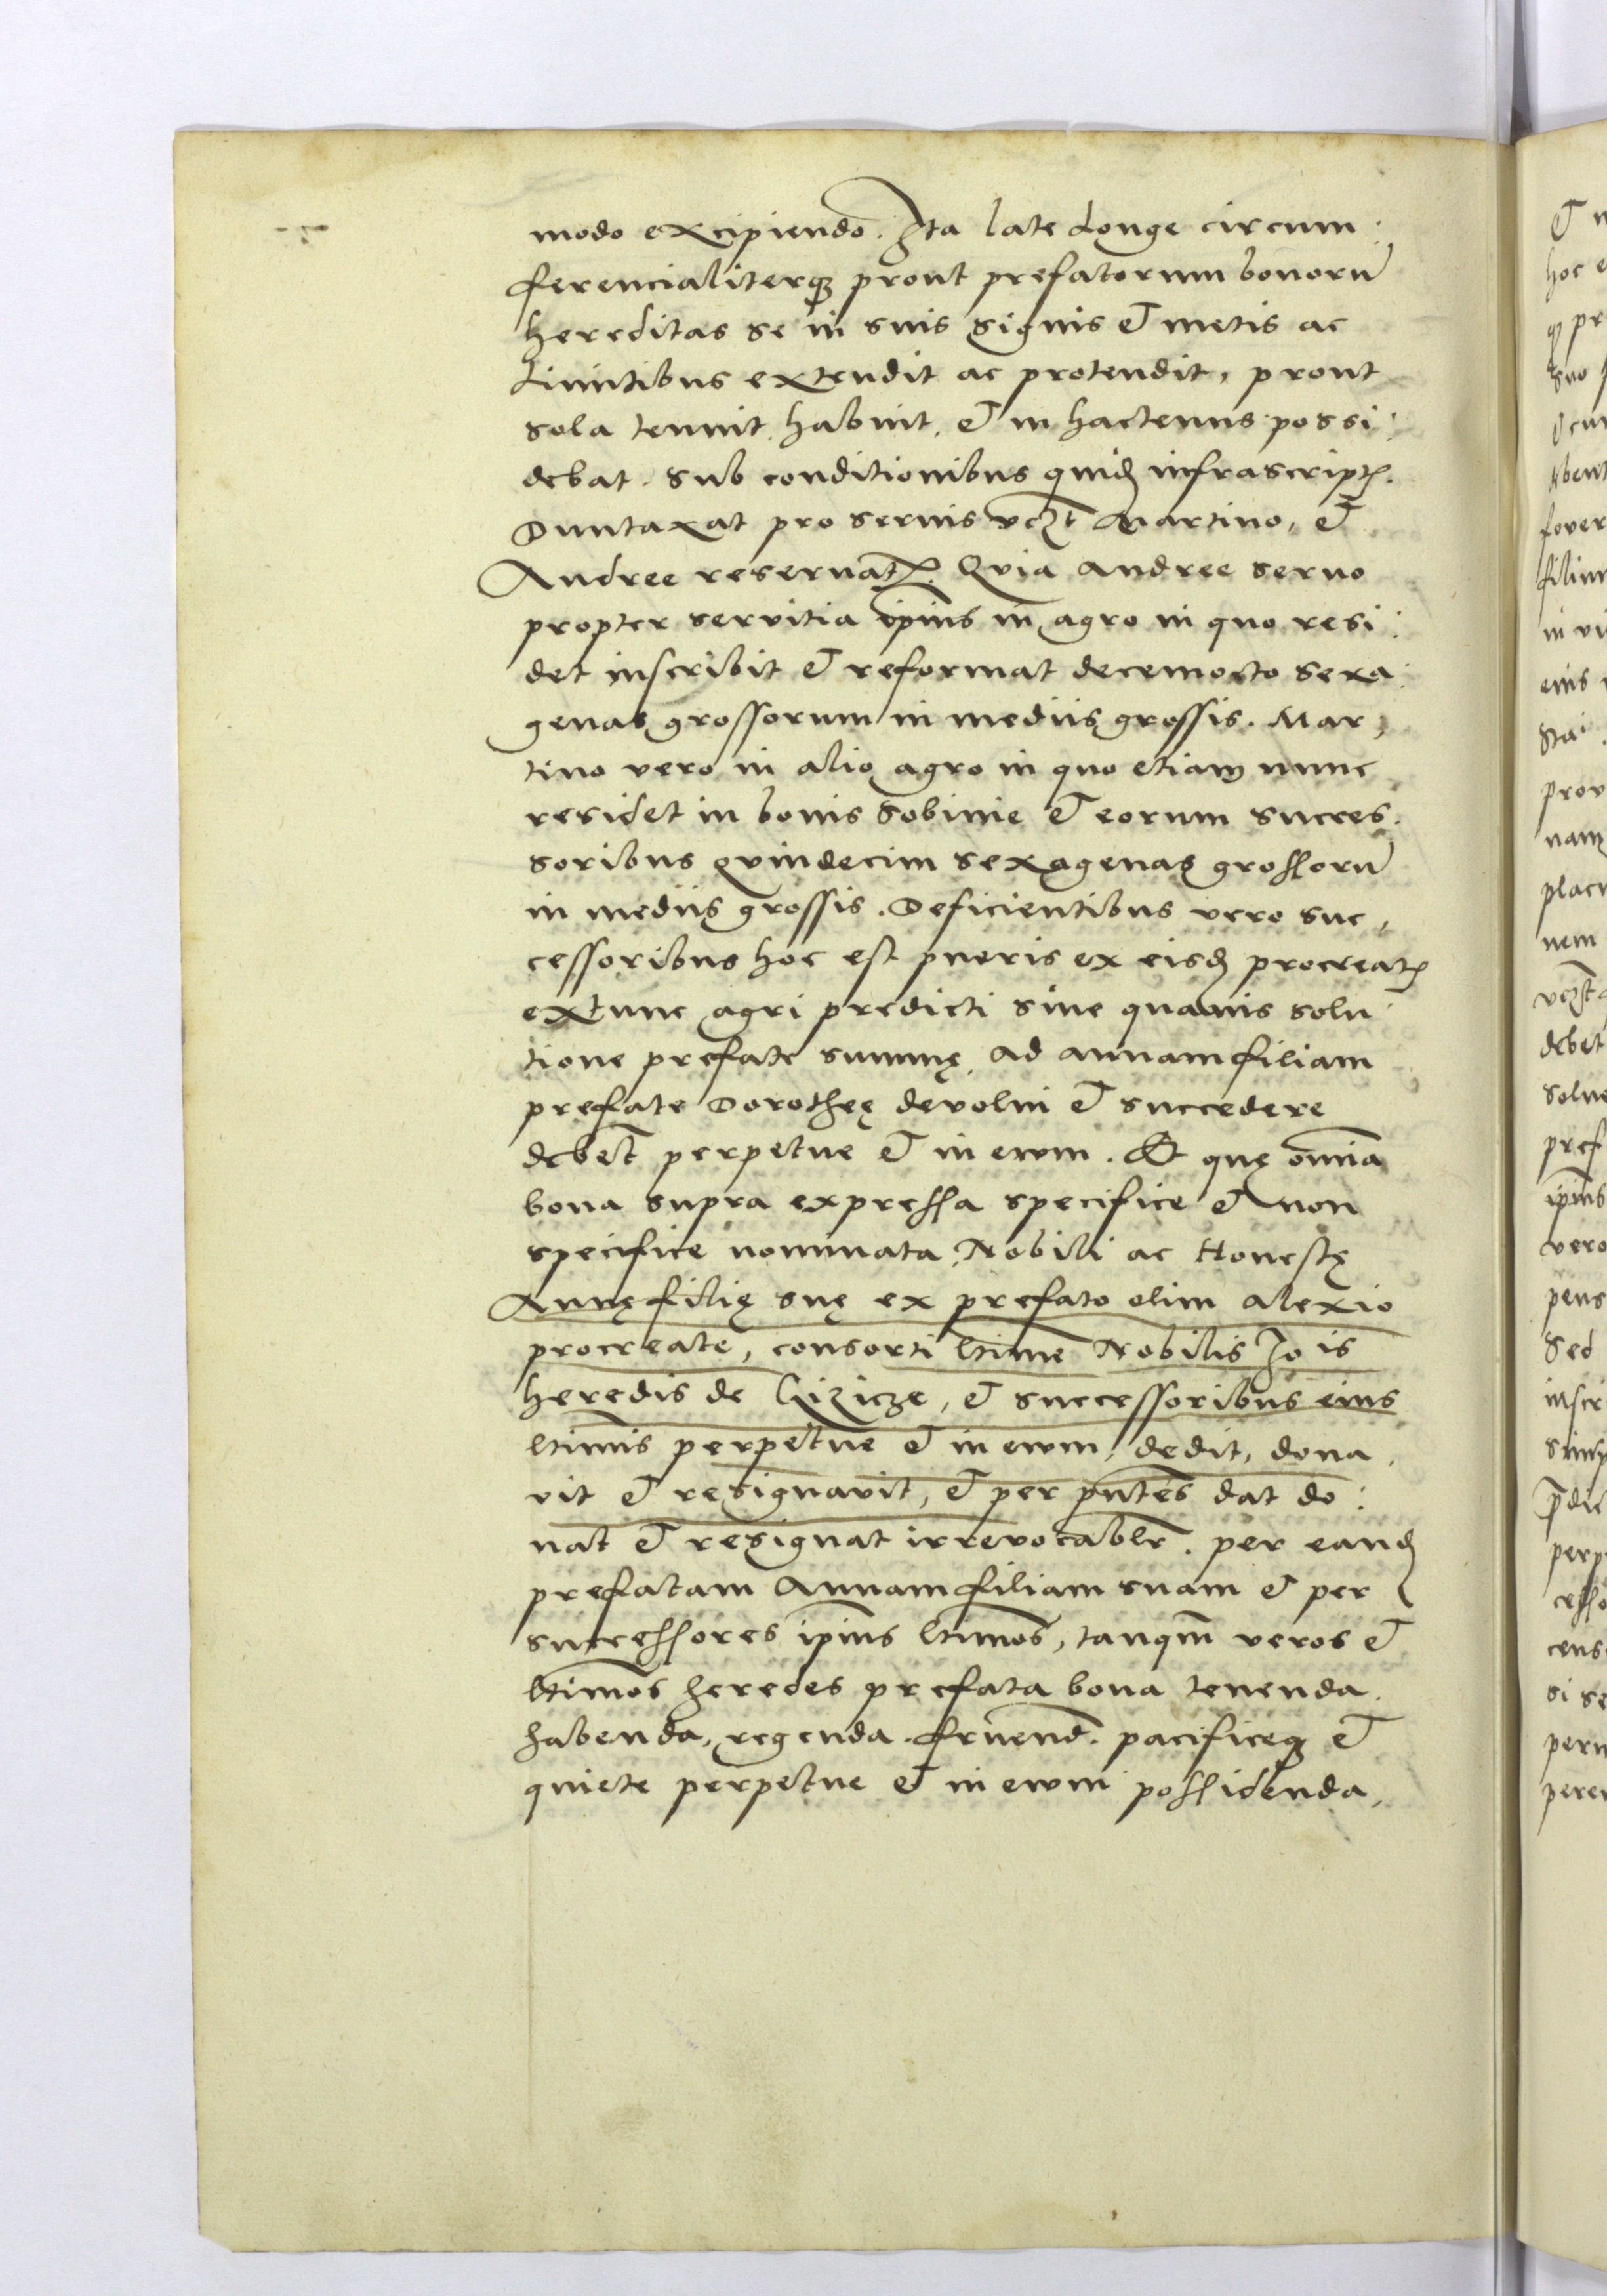 modo excipiendo. Ita late longe circum:
ferencialiterq₃ prout prefatorum bonorū
hereditas se in suis signis et metis ac
limitibus extendit ac protendit, prout
sola tenuit, habuit, et in hactenus possi:
debat. Sub conditionibus quid infrascript.
Duntaxat pro servis vczt Martino, et
Andree reservat. Quia Andree servo
propter servitia ipius in agro in quo resi:
det inscribit et reformat decemocto sexa:
genas grossorum in mediis grossis. Mar,
tino vero in alio agro in quo etiam nunc
residet in bonis Sobinie et eorum succes.
soribus quindecim sexagenas grossorū
in mediis grossis. Deficientibus vero suc,
cessoribus hoc est pueris ex eisd procreat
extunc agri predicti sine quavis solu
tione prefate summę, ad annam filiam
prefate Dorotheę devolvi et succedere
debet perpetue et in ewm. Et quę omnia
bona supra expressa specifice et non
specifice nominata, Nobili ac Honestę
Annę filię suę ex prefato olim Alexio
procreate, consorti ltime Nobilis Jois
heredis de Lizicze, et successoribus eius
ltimis perpetue et in ewm, dedit, dona,
vit et resignavit, et per pntes dat do:
nat et resignat irrevocablr. per eand
prefatam Annam filiam suam et per
successores ipius ltimos, tanqm veros et
ltimos heredes prefata bona tenenda.
habenda, regenda. fruend. pacificeq₃ et
quiete perpetue et in ewm possidenda,